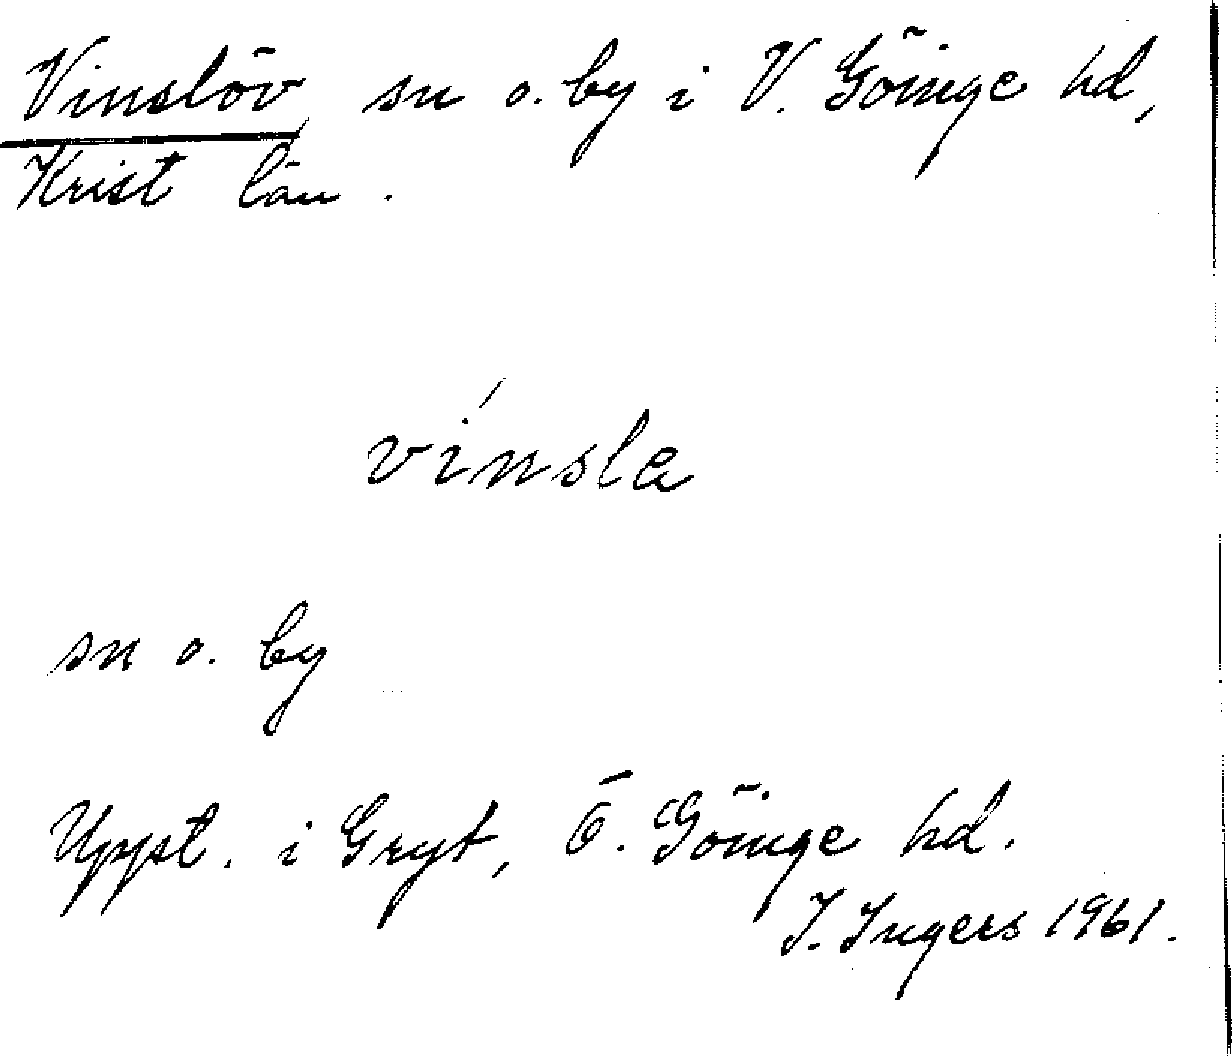 Vinslöv, sn o. by i V. Göinge hd,
Krist län.
vínsla
sn o. by
Uppt. i Gryt, Ö. Göinge hd.
I. Ingers 1961.